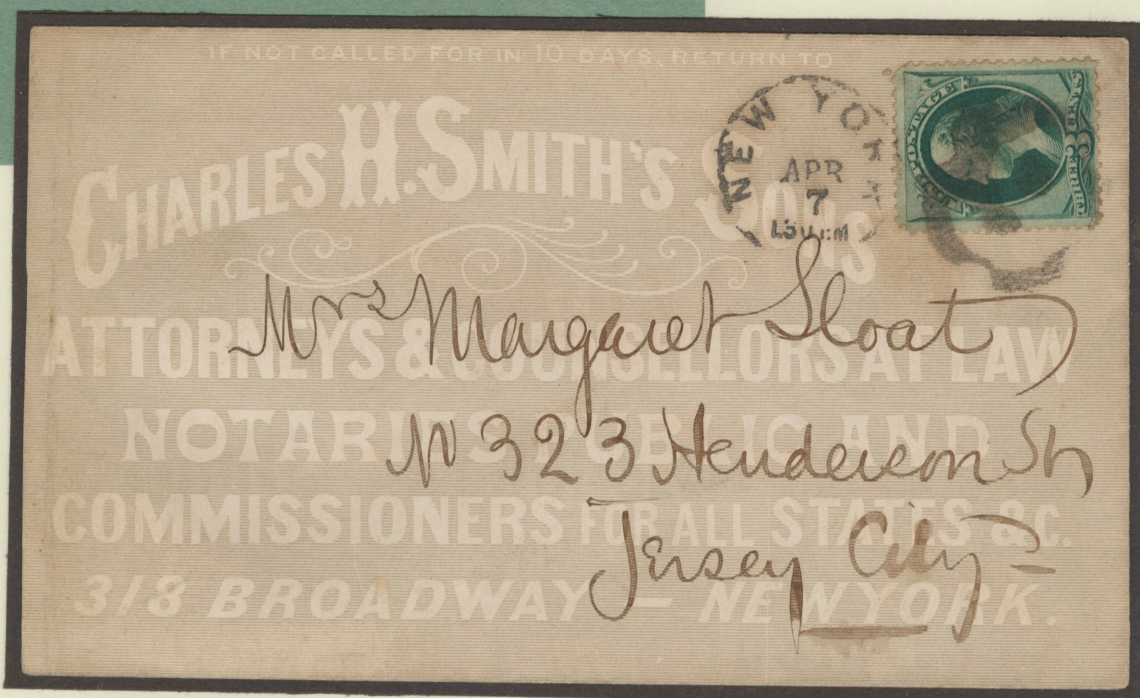 IF NOT CALLED FOR IN 10 DAYS, RETURN TO
CHARLES H. SMITH'S SONS
ATTORNEYS & COUNSELLORS AT LAW
NOTARIES PUBLIC AND
COMMISSIONERS FOR ALL STATES &C.
318 BROADWAY — NEW YORK.
NEW YORK
APR
7
Mrs Margaret Sloat
No 323 Henderson St
Jersey City